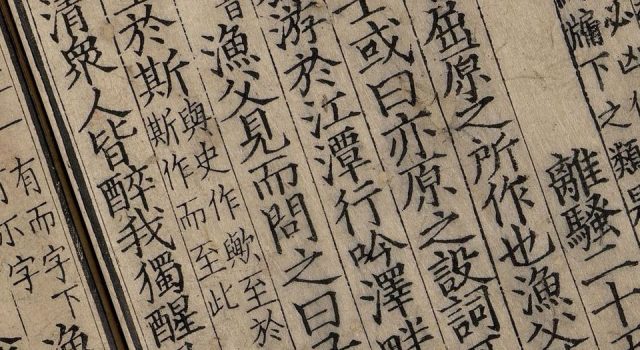 牖下之類
離騷二十
屈原之所作也漁父
或曰亦原之設詞
游於江潭行吟澤畔
漁父見而問之曰子
於斯
與史作歟至於
斯作而至此
清衆人皆醉我獨醒
有而字下
示字
漁